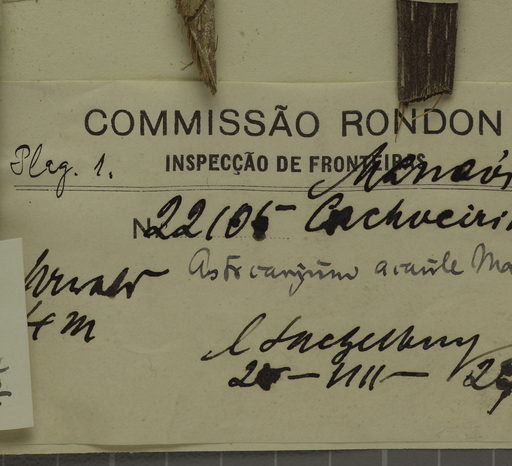 COMMISSÃO RONDON
Pleg. 1. INSPECÇÃO DE FRONTEIRAS
Manáos
No. 22105 Cachoeiri
Astrocaryum acaule Ma
4 m
Luetzelburg
VIII